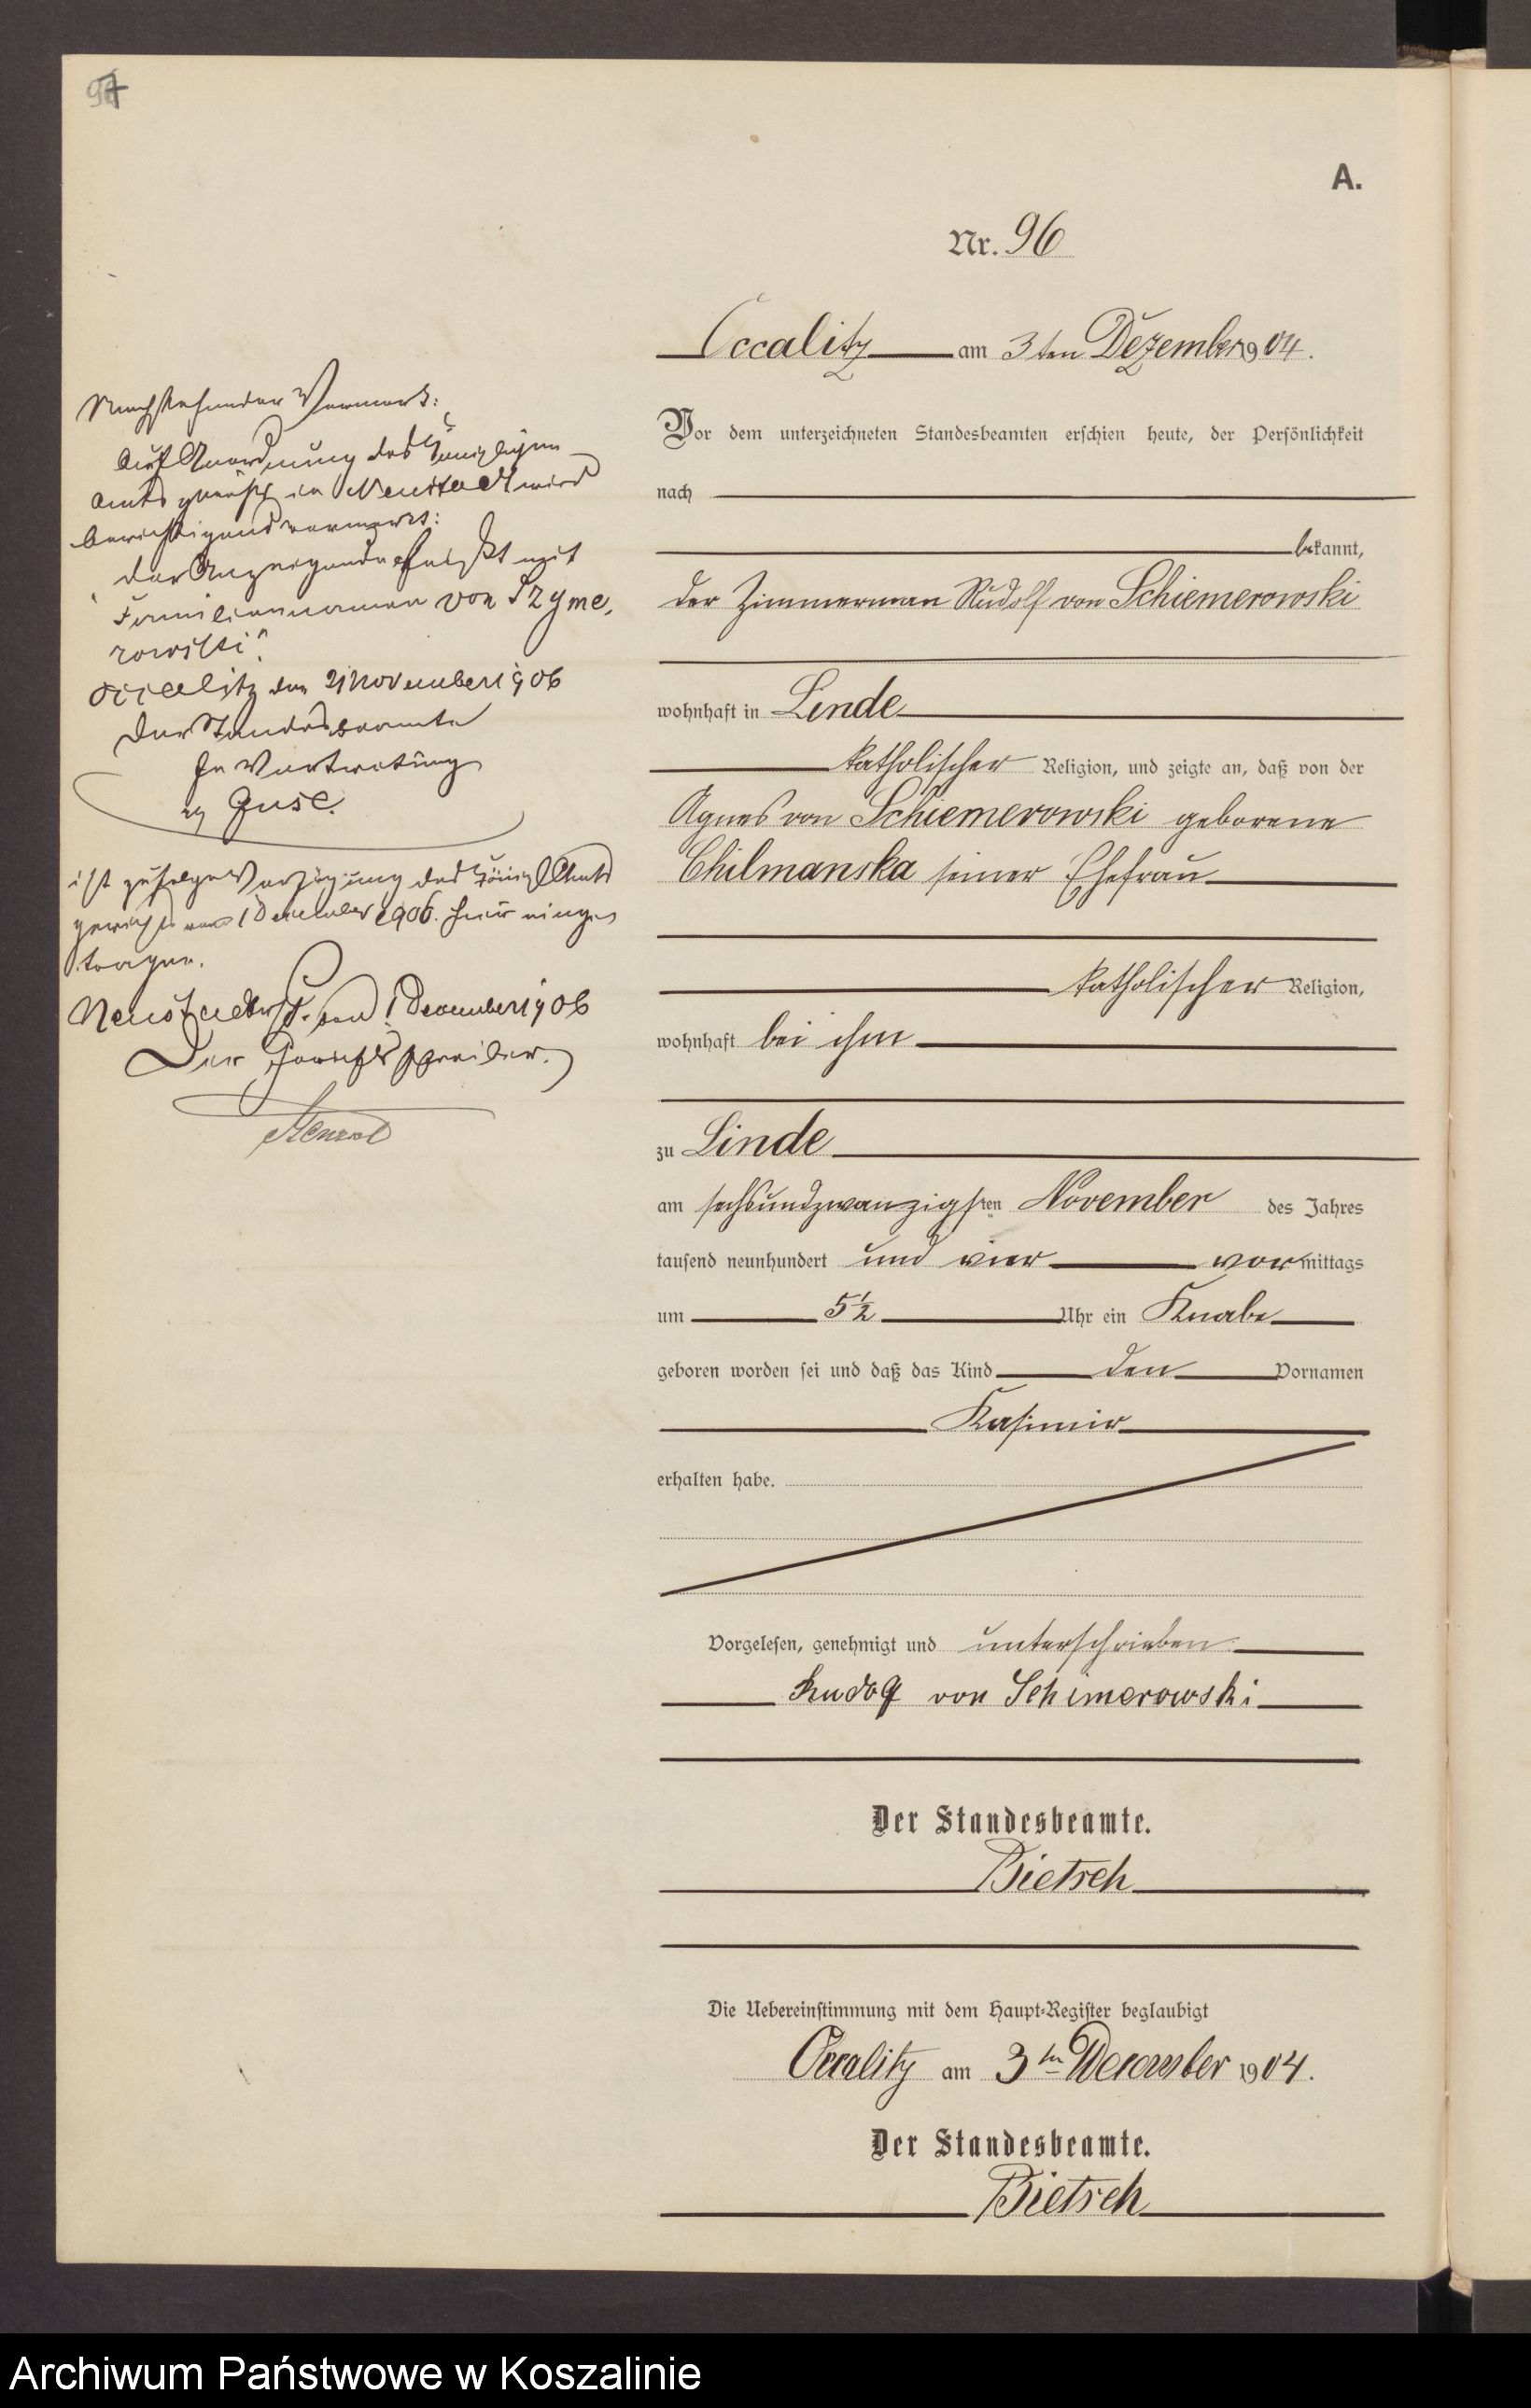 97
A.
Nr. 96
Occalitz am 3ten Dezember 1904.
Vor dem unterzeichneten Standesbeamten erschien heute, der Persönlichkeit
nach
bekannt,
der Zimmerman Rudolf von Schiemerowski
wohnhaft in Linde
katholischer Religion, und zeigte an, daß von der
Agnes von Schiemerowski geborene
Chilmanska seiner Ehefrau
katholischer Religion,
wohnhaft bei ihm
zu Linde
am sechsundzwanzigsten November des Jahres
tausend neunhundert und vier vormittags
um 5½ Uhr ein Knabe
geboren worden sei und daß das Kind den Vornamen
Kasimir
erhalten habe.
Vorgelesen, genehmigt und unterschrieben.
Rudolf von Schimerowski
Der Standesbeamte.
Bietsch
Die Uebereinstimmung mit dem Haupt-Register beglaubigt
Occalitz am 3ten December 1904.
Der Standesbeamte.
Bietsch
Nachstehender Vermerk:
Auf Anordnung des Königlichen
Amtsgerichts in Neustadt wird
berichtigend vermerkt:
der Anzeigende heißt mit
Familiennamen von Szyme,
rowski".
Occalitz den 21 November 1906
Der Standesbeamte
In Vertretung
gz Guse.
ist zufolge Verfügung des Königl Amts
gerichts vom 1 December 1906. hier einge
tragen.
Neustadt den 1 December 1906
Der Gerichtsschreiber.
Archiwum Państwowe w Koszalinie